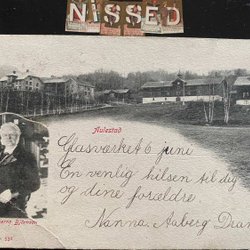 NISSED
Aulestad
Glasværket 6 juni
En venlig hilsen til dig
og dine forældre
Nanna. Aaberg Dra
Bjørnson
531